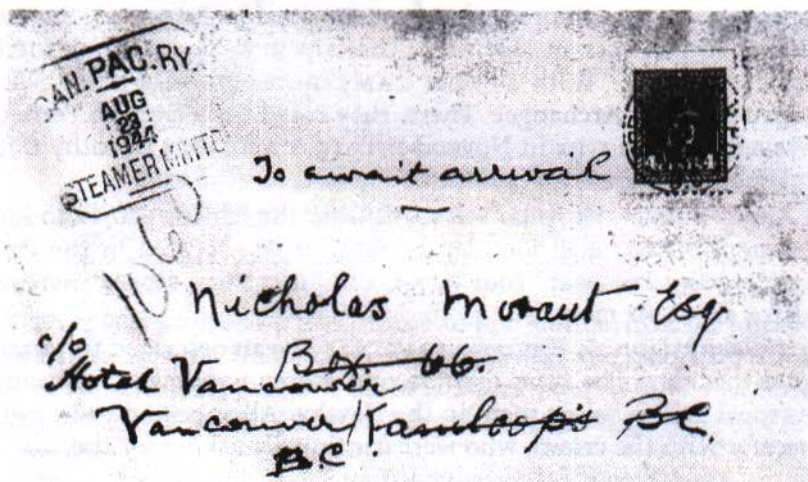 CAN. PAC. RY.
AUG
23
1944
STEAMER MINTO
To await arrival
Nicholas Morant Esq
Box 66.
c/o
Hotel Vancouver
Vancouver Kamloops BC.
B.C